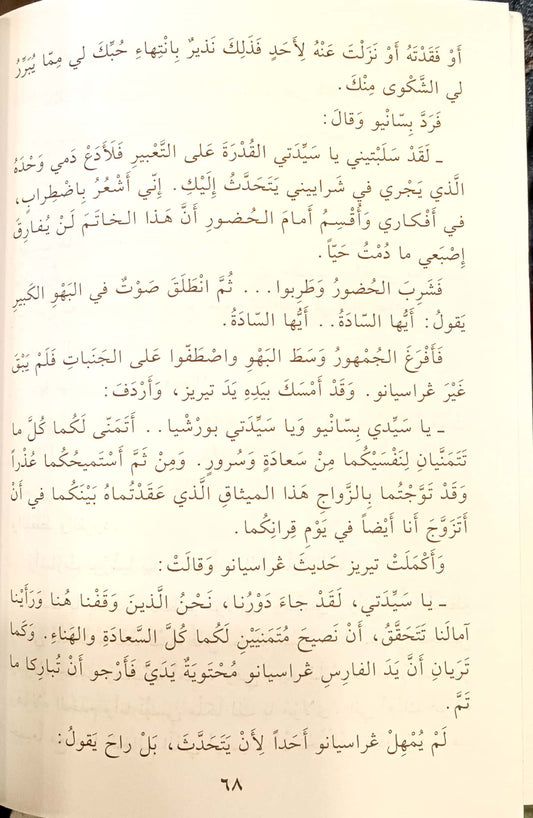 أَوْ فَقَدْتَهُ أَوْ نَزَلْتَ عَنْهُ لِأَحَدٍ فَذَلِكَ نَذيرٌ بِانْتِهاءِ حُبِّكَ لي مِمّا يُبَرِّرُ
لي الشَّكْوى مِنْكَ.
فَرَدَّ بِسّانْيو وَقالَ:
ـ لَقَدْ سَلَبْتِيني يا سَيِّدَتي القُدْرَةَ عَلى التَّعْبيرِ فَلَأَدَعْ دَمي وَحْدَهُ
الَّذي يَجْري في شَراييني يَتَحَدَّثُ إِلَيْكِ. إِنّي أَشْعُرُ بِاضْطِرابٍ،
في أَفْكاري وَأُقْسِمُ أَمامَ الحُضورِ أَنَّ هَذا الخاتَمَ لَنْ يُفارِقَ
إِصْبَعي ما دُمْتُ حَيّاً.
فَشَرِبَ الحُضورُ وَطَرِبوا... ثُمَّ انْطَلَقَ صَوْتٌ في البَهْوِ الكَبيرِ
يَقولُ: أَيُّها السّادَةُ.. أَيُّها السّادَةُ.
فَأَفْرَغَ الجُمْهورُ وَسَطَ البَهْوِ واصْطَفّوا عَلى الجَنَباتِ فَلَمْ يَبْقَ
غَيْرَ غْراسيانو. وَقَدْ أَمْسَكَ بِيَدِهِ يَدَ تيريز، وَأَرْدَفَ:
ـ يا سَيِّدي بِسّانْيو وَيا سَيِّدَتي بورْشْيا.. أَتَمَنّى لَكُما كُلَّ ما
تَتَمَنَّيانِ لِنَفْسَيْكُما مِنْ سَعادَةٍ وَسُرورٍ. وَمِنْ ثَمَّ أَسْتَميحُكُما عُذْراً
وَقَدْ تَوَّجْتُما بِالزَّواجِ هَذا الميثاقِ الَّذي عَقَدْتُماهُ بَيْنَكُما في أَنْ
أَتَزَوَّجَ أَنا أَيْضاً في يَوْمِ قِرانِكُما.
وَأَكْمَلَتْ تيريز حَديثَ غْراسيانو وَقالَتْ:
ـ يا سَيِّدَتي، لَقَدْ جاءَ دَوْرُنا، نَحْنُ الَّذينَ وَقَفْنا هُنا وَرَأَيْنا
آمالَنا تَتَحَقَّقُ، أَنْ نَصيحَ مُتَمَنِّيَيْنِ لَكُما كُلَّ السَّعادَةِ والهَناءِ. وَكَما
تَرَيانِ أَنَّ يَدَ الفارِسِ غْراسيانو مُحْتَوِيَةٌ يَدَيَّ فَأَرْجو أَنْ تُبارِكا ما
تَمَّ.
لَمْ يُمْهِلْ غْراسيانو أَحَداً لِأَنْ يَتَحَدَّثَ، بَلْ راحَ يَقولُ:
٦٨